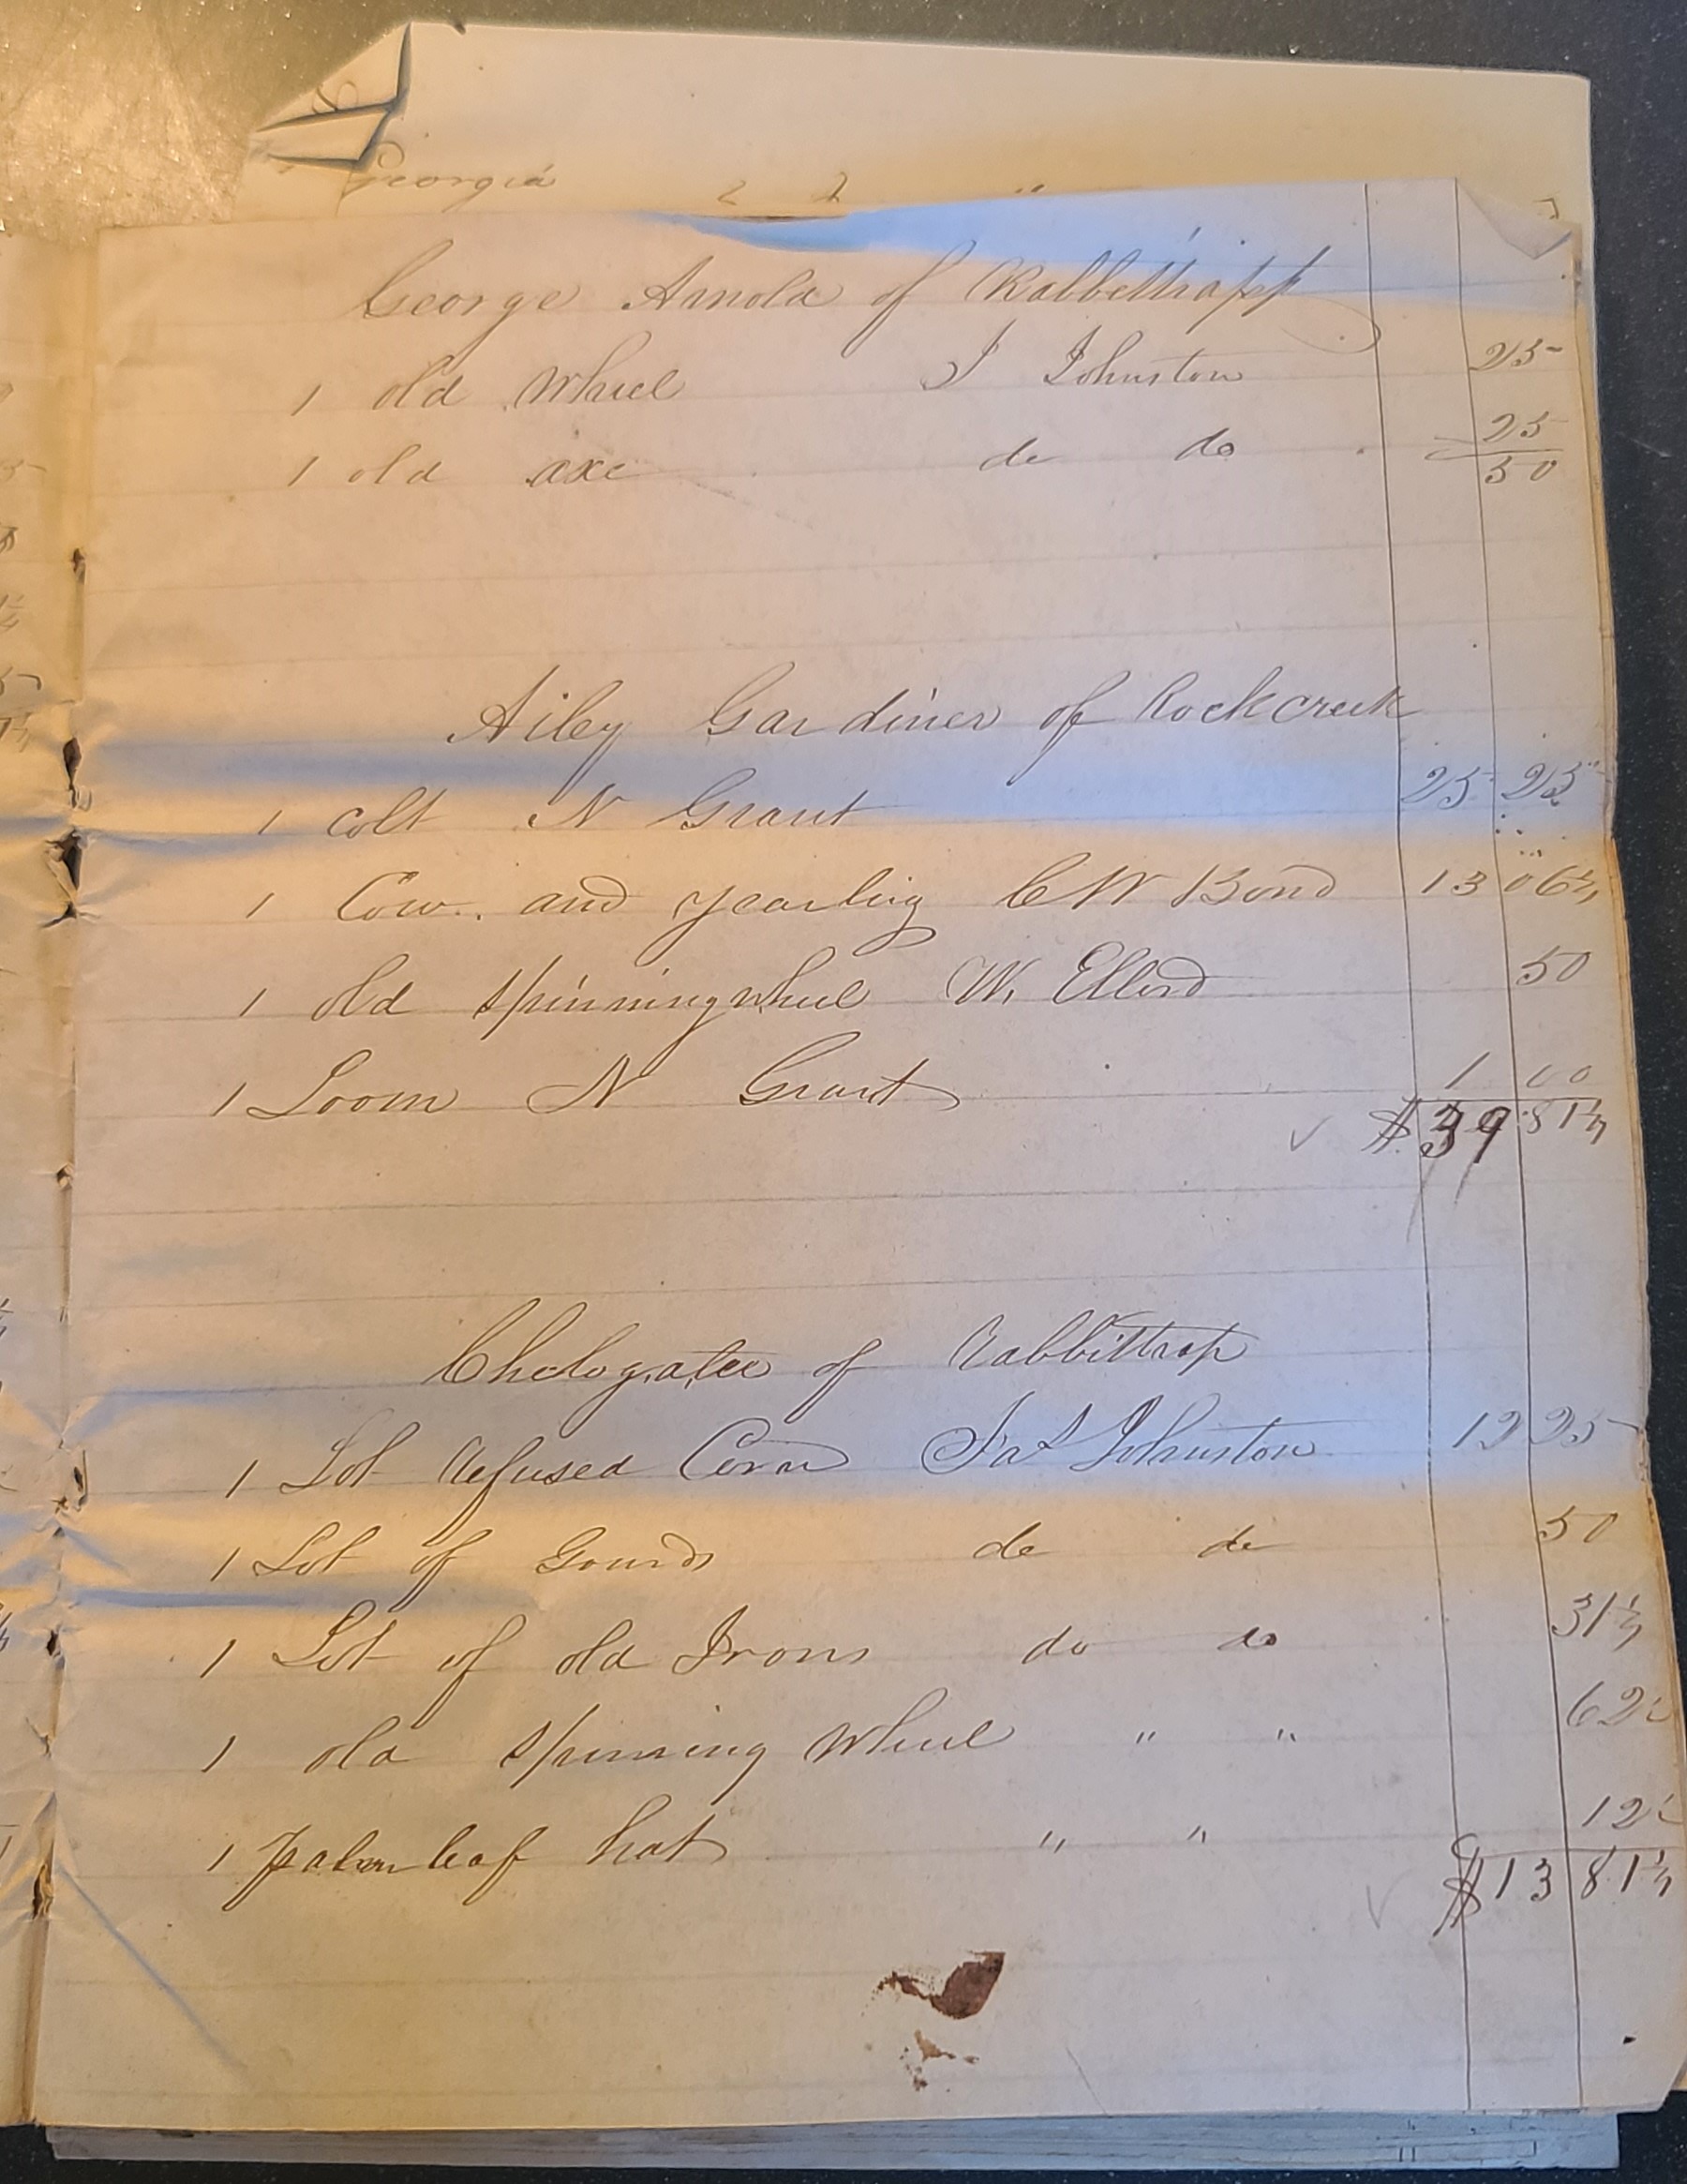 Georgia
George Arnold of Rabbettrapp
1 old wheel J Johnston 25
1 old axe do do 25
50
Ailey Gardiner of Rockcreek
1 colt N Grant 25 25
1 Cow and yearling C W Bond 13 06¼
1 old spinningwheel W. Ellord 50
1 Loom N Grant 1 00
$39 81¼
Chelogatee of Rabbittrap
1 Lot Refused Corn Jas Johnston 12 25
1 Lot of Gourds do do 50
1 Lot of old Irons do do 31¼
1 old spinning wheel " " 62½
1 palm leaf hat " " 12½
$13 81¼